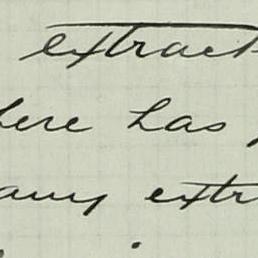 extract
here has
any extr